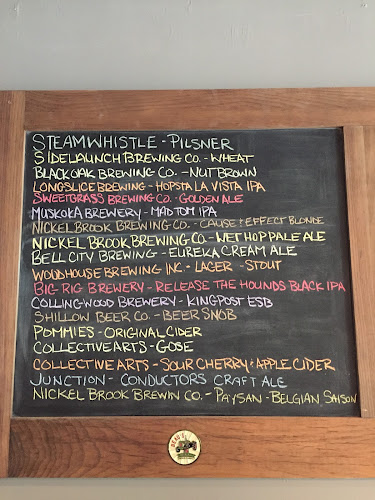 STEAMWHISTLE - PILSNER
SIDELAUNCH BREWING CO. - WHEAT
BLACK OAK BREWING CO. - NUT BROWN
LONGSLICE BREWING - HOPSTA LA VISTA IPA
SWEETGRASS BREWING CO. - GOLDEN ALE
MUSKOKA BREWERY - MAD TOM IPA
NICKEL BROOK BREWING CO. - CAUSE & EFFECT BLONDE
NICKEL BROOK BREWING CO. - WET HOP PALE ALE
BELL CITY BREWING - EUREKA CREAM ALE
WOODHOUSE BREWING INC. - LAGER - STOUT
BIG RIG BREWERY - RELEASE THE HOUNDS BLACK IPA
COLLINGWOOD BREWERY - KINGPOST ESB
SHILLOW BEER CO. - BEER SNOB
POMMIES - ORIGINAL CIDER
COLLECTIVE ARTS - GOSE
COLLECTIVE ARTS - SOUR CHERRY & APPLE CIDER
JUNCTION - CONDUCTORS CRAFT ALE
NICKEL BROOK BREWIN CO. - PAYSAN - BELGIAN SAISON